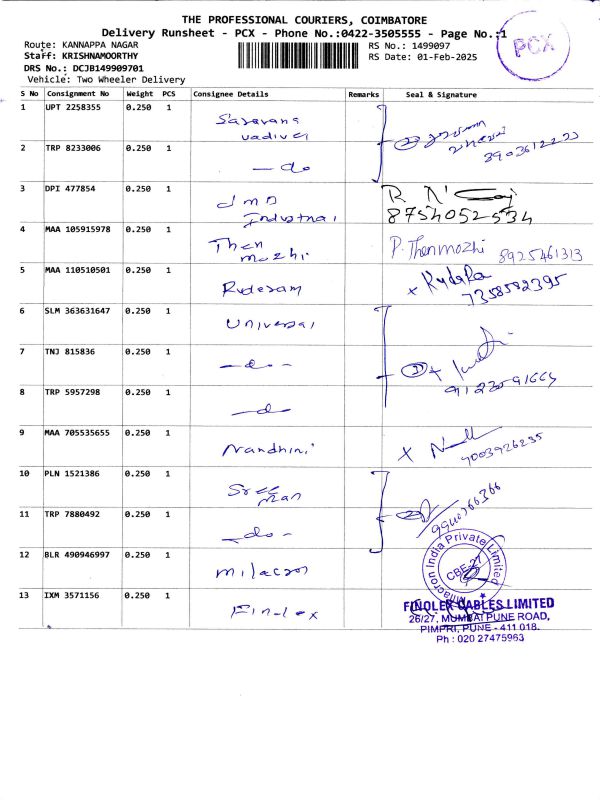 THE PROFESSIONAL COURIERS, COIMBATORE
Delivery Runsheet - PCX - Phone No.:0422-3505555 - Page No.:1
PCX
Route: KANNAPPA NAGAR
RS No.: 1499097
Staff: KRISHNAMOORTHY
RS Date: 01-Feb-2025
DRS No.: DCJB149909701
Vehicle: Two Wheeler Delivery
S No Consignment No Weight PCS Consignee Details Remarks Seal & Signature
1 UPT 2258355 0.250 1 Saravana
vadivel
2 TRP 8233006 0.250 1 - do
3 DPI 477854 0.250 1 JMD
Industrial
8754052534
4 MAA 105915978 0.250 1 Then
mozhi
P. Thenmozhi 8925461313
5 MAA 110510501 0.250 1 Rudesam
7358592395
6 SLM 363631647 0.250 1 Universal
7 TNJ 815836 0.250 1 - do -
8 TRP 5957298 0.250 1 - do
9 MAA 705535655 0.250 1 Nandhini
10 PLN 1521386 0.250 1 Sree
11 TRP 7880492 0.250 1 - do -
9940766366
12 BLR 490946997 0.250 1 Milacron
Milacron India Private Limited
CBE-27
13 IXM 3571156 0.250 1 Finolex
FINOLEX CABLES LIMITED
26/27, MUMBAI PUNE ROAD,
PIMPRI, PUNE - 411 018.
Ph : 020 27475963